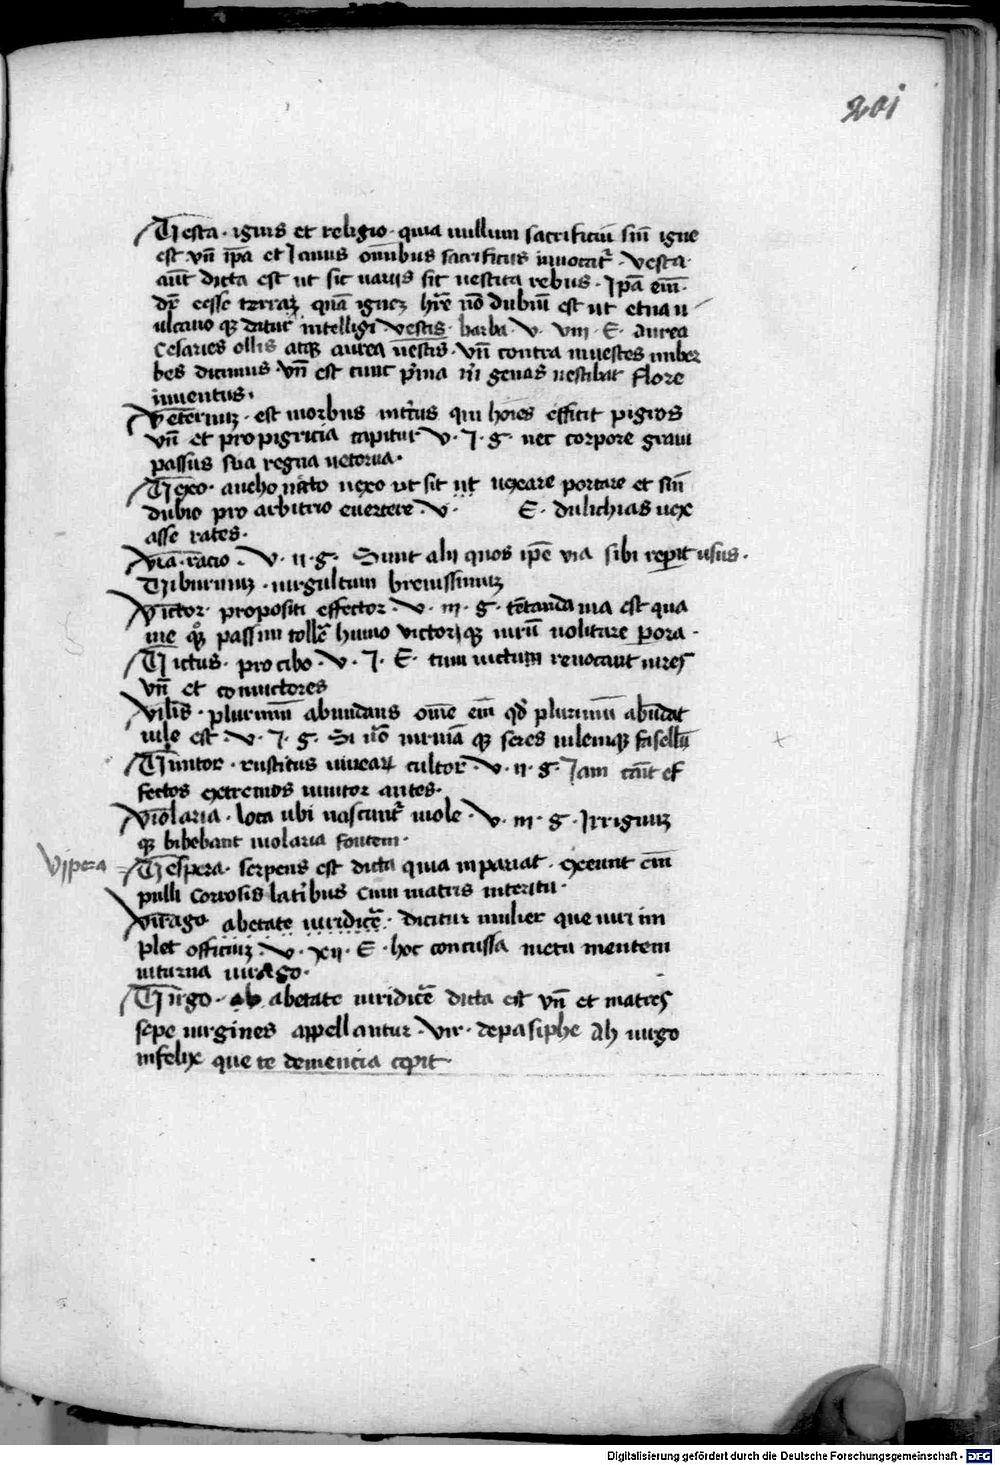 201
Vesta · ignis et religio · quia nullum sacrificiū sin̄ igne
est vn̄ ip̄a et Janus om̄ibus sacrificiis inuocat᷑ · vesta
aūt dicta est ut sit uariis sit uestita rebus · Jp̄a em̄ ·
dr̄ eesse terraꝫ quā igneꝫ hr̄e nō dubiū est ut etna u
ulcano qꝫ datur intelligi · vestis · barba · v · viii · E · aurea
Cesaries ollis atqꝫ aurea uestis · vn̄ contra inuestes imber
bes dicimus · vn̄ est tunc p̄ma m̄ genas uestibat flore
iuuentus ·
veternuꝫ · est morbus int̄us qui hoīes efficit pigros
vn̄ et pro pigricia capitur v · J · g · nec corpore graui
passus sua regna uetorna ·
Vexo · aueho nāto uexo ut sit ut uexare portare et sin̄
dubio pro arbitrio euertere · v · E · dulichias uex
asse rates ·
via · racio · v · ii · g · Sunt alii quos ip̄e via sibi reperit usus ·
Viburnuꝫ · uirgultum breuissimuꝫ
victor · propositi effector · v · iii · g · tētanda uia est qua
me qꝫ passim tollē humo victor qꝫ uirū uolitare pora ·
Victus · pro cibo · v · J · E · tum uictum reuocant uires
vn̄ et conuictores
vilis · plurimū abundans om̄e em̄ qd̄ plurimū abūdat
uile est · v · J · g · Si uō uiciā qꝫ seres uilemqꝫ fasellū
Vinitor · rusticus uinearꝝ cultor · v · ii · g · Jam cāit ef
fectos extremos uinitor antes ·
violaria · loca ubi nascunt᷑ uiole · v · iii · g · Jrriguuꝫ
qꝫ bibebant uiolaria fontem ·
Vipera
Vespera · serpens est dicta quia ui pariat · exeunt em̄
pulli corrosis latibus cum matris interitu ·
virago abetate uiridicē · dicitur mulier que uiri im
plet officiuꝫ · v · xii · E · hoc concussa metu mentem
iuturna uirago ·
Virgo · ab abetate uiridicē dicta est vn̄ et matres
sepe uirgines appellantur · vir · de pasiphe Ah uirgo
infelix que te demencia cepit
Digitalisierung gefördert durch die Deutsche Forschungsgemeinschaft - DFG